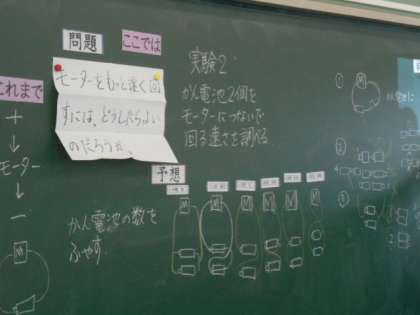 問題
ここでは
これまで
＋
↓
モーター
↓
−
モーターをもっと速く回
すには、どうしたらよい
のだろうか。
実験2
かん電池2個を
モーターにつないで
回る速さを調べる
予想
かん電池の数を
ふやす
M
M
M
M
M
M
M
①
M
②
③